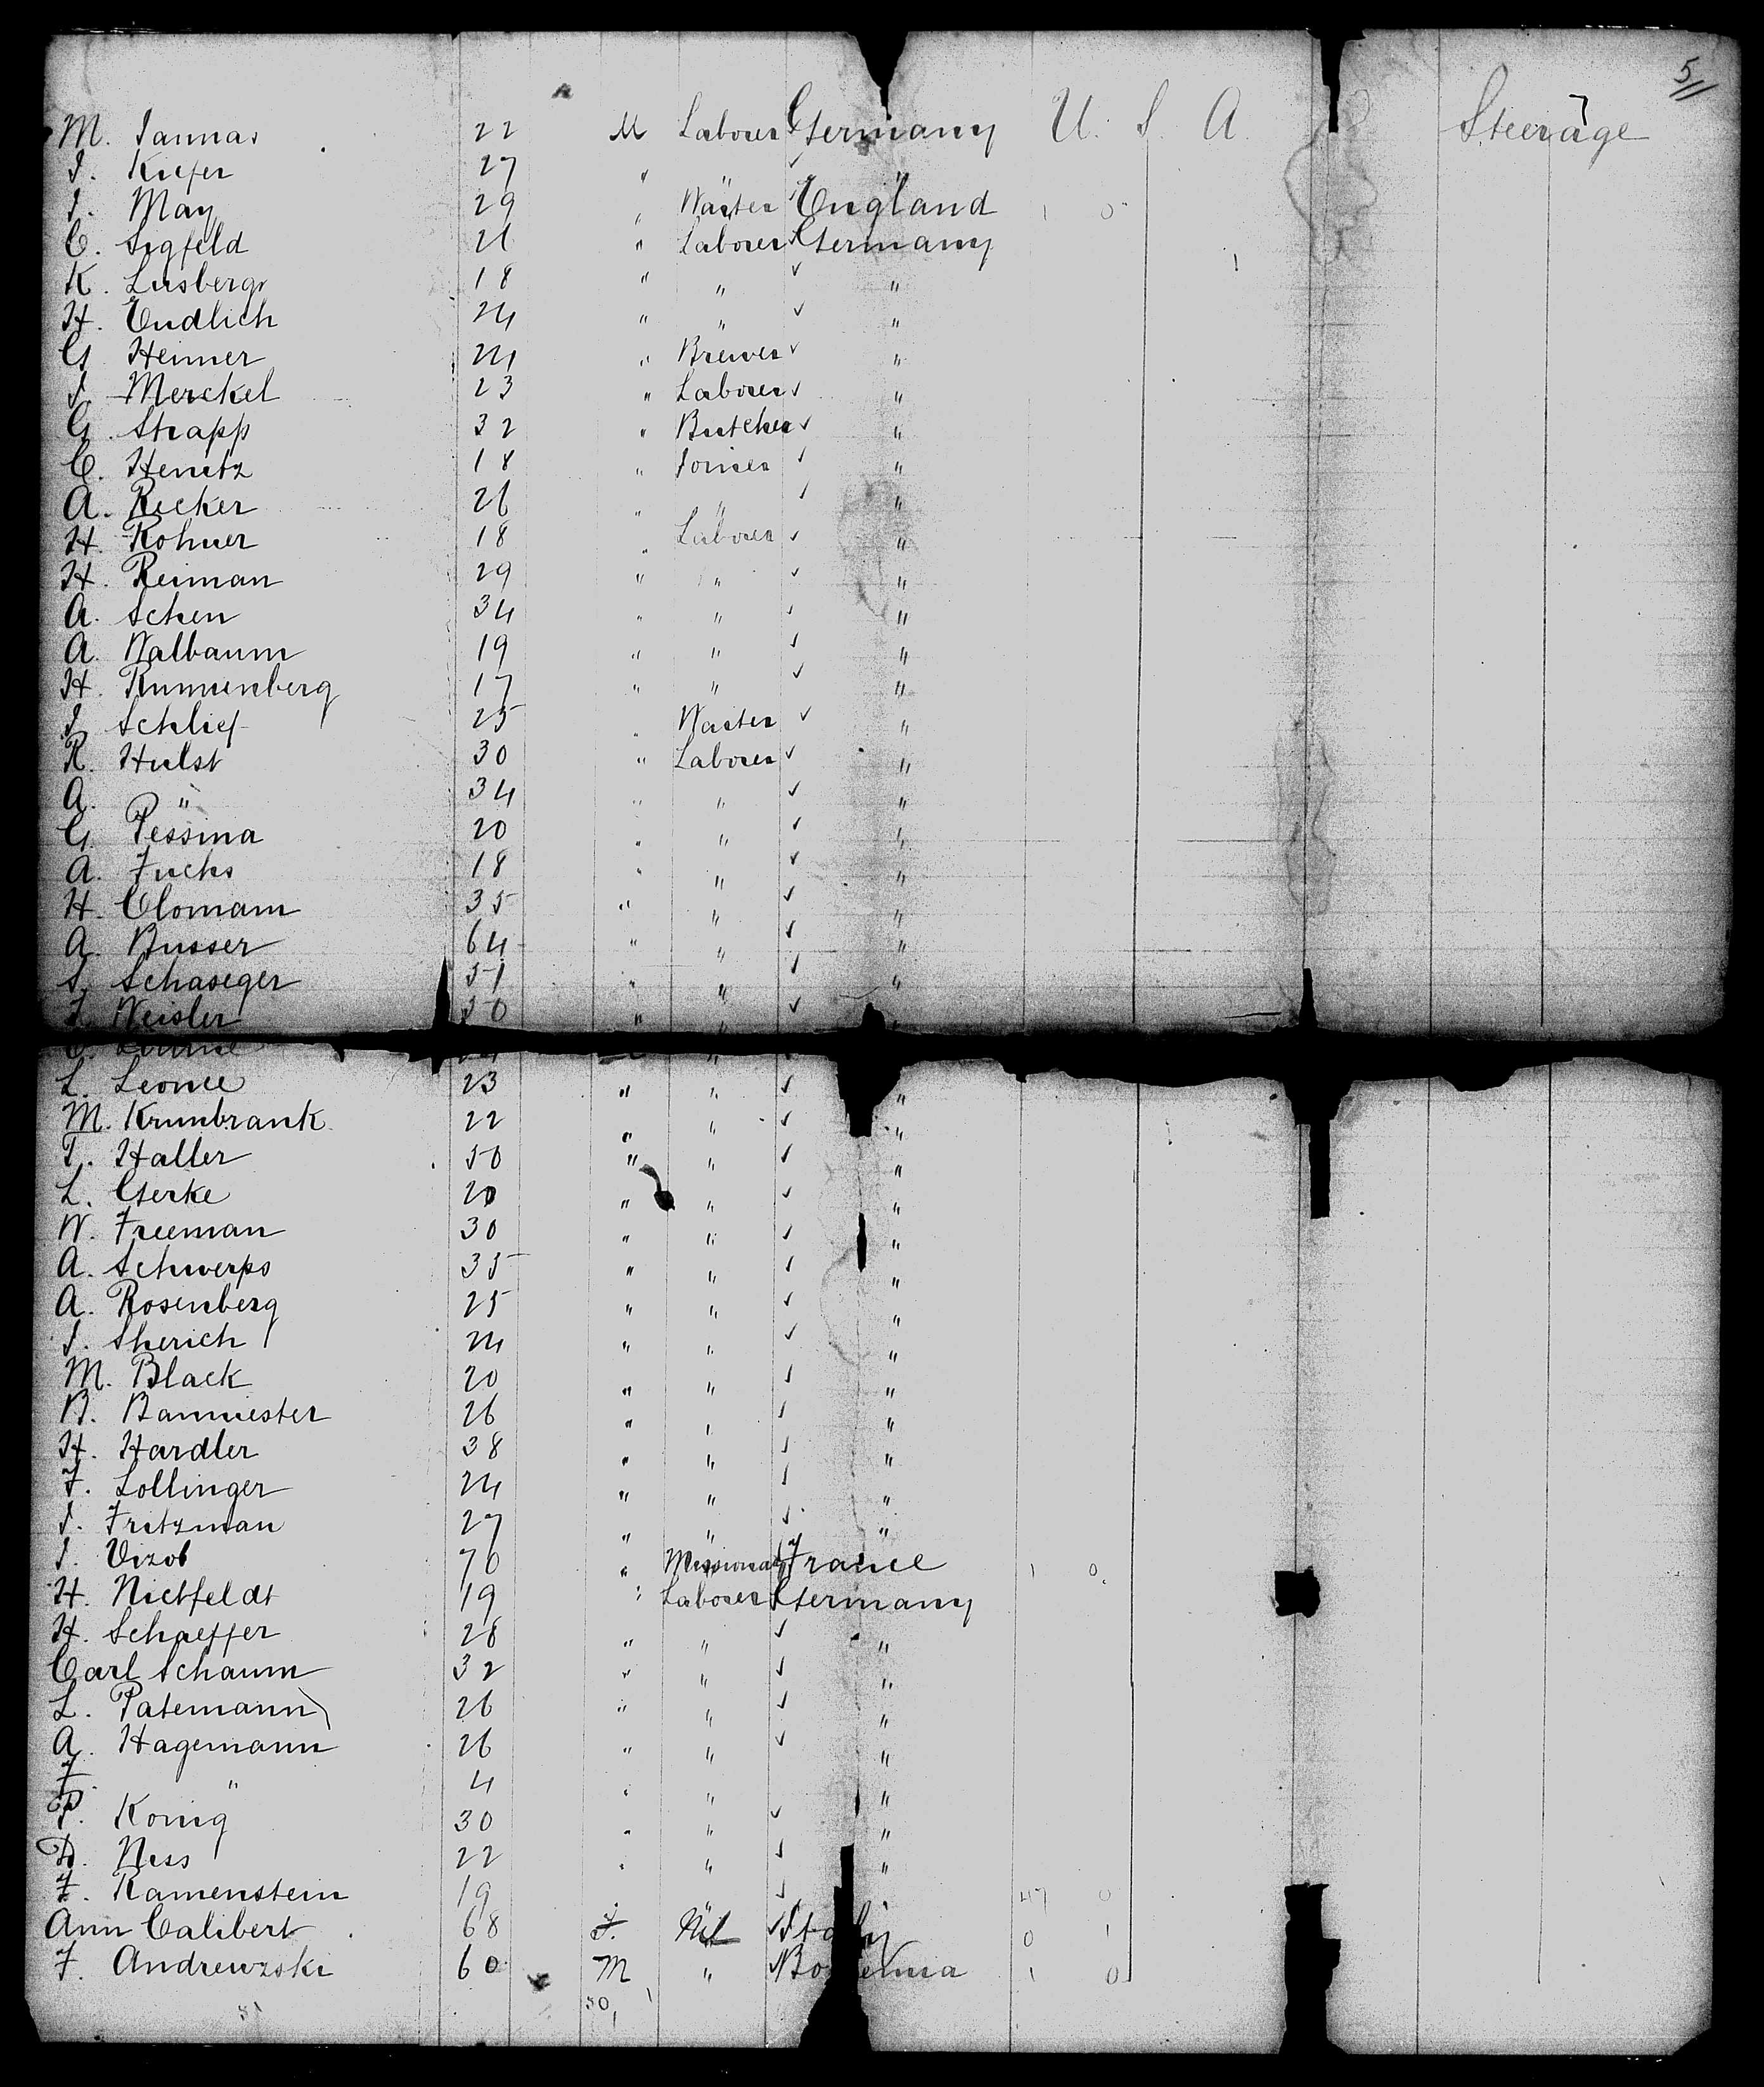 5
M. Jannas 22 M Laborer Germany U. S. A. Steerage
J. Kiefer 27 " " "
J. May 29 " Waiter England 1 0
C. Sigfeld 21 " Laborer Germany
K. Lusberg 18 " " "
H. Endlich 24 " " "
G. Heimer 24 " Brewer "
J. Merckel 23 " Laborer "
G. Strapp 32 " Butcher "
C. Hentz 18 " Joiner "
A. Recker 26 " " "
H. Rohner 18 " Laborer "
H. Reiman 29 " " "
A. Schen 34 " " "
A. Walbaum 19 " " "
H. Rummenberg 17 " " "
J. Schlief 25 " Waiter "
R. Hulst 30 " Laborer "
A. " 34 " " "
G. Pessina 20 " " "
A. Fuchs 18 " " "
H. Clomann 35 " " "
A. Busser 64 " " "
S. Schaseger 51 " " "
J. Weisler 30 " " "
L. Leonie 23 " " "
M. Krumbrank 22 " " "
T. Haller 50 " " "
L. Gerke 20 " " "
W. Freeman 30 " " "
A. Schwerps 35 " " "
A. Rosenberg 25 " " "
J. Sherich 24 " " "
M. Black 20 " " "
B. Banmiester 26 " " "
H. Hardler 38 " " "
F. Lollinger 24 " " "
J. Fritzman 27 " " "
J. Vizob 70 " Missionary France 1 0
H. Nietfeldt 19 " Laborer Germany
H. Schaeffer 28 " " "
Carl Schaum 32 " " "
L. Patemann 26 " " "
A. Hagemann 26 " " "
F. " 4 " " "
P. Konig 30 " " "
D. Ness 22 " " "
F. Ramenstein 19 47 0
Ann Calibert 68 F. Nil Italy 0 1
F. Andrewzski 60 M " Bohemia 1 0
50 1